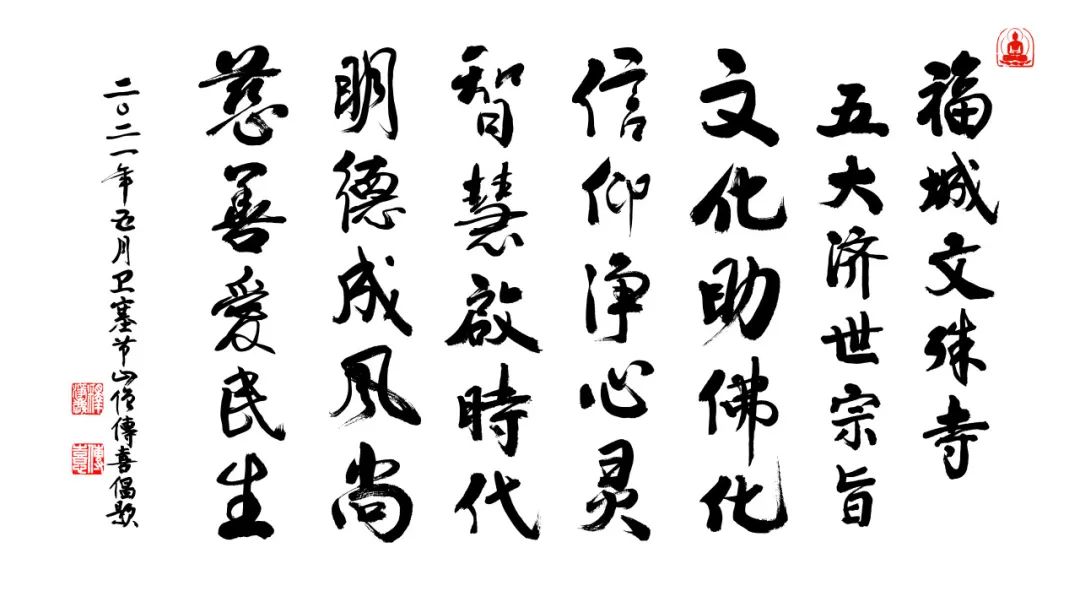 福城文殊寺
五大济世宗旨
文化助佛化
信仰净心灵
智慧啟時代
明德成风尚
慈善爱民生
二〇二一年五月卫塞节山僧傳喜倡题